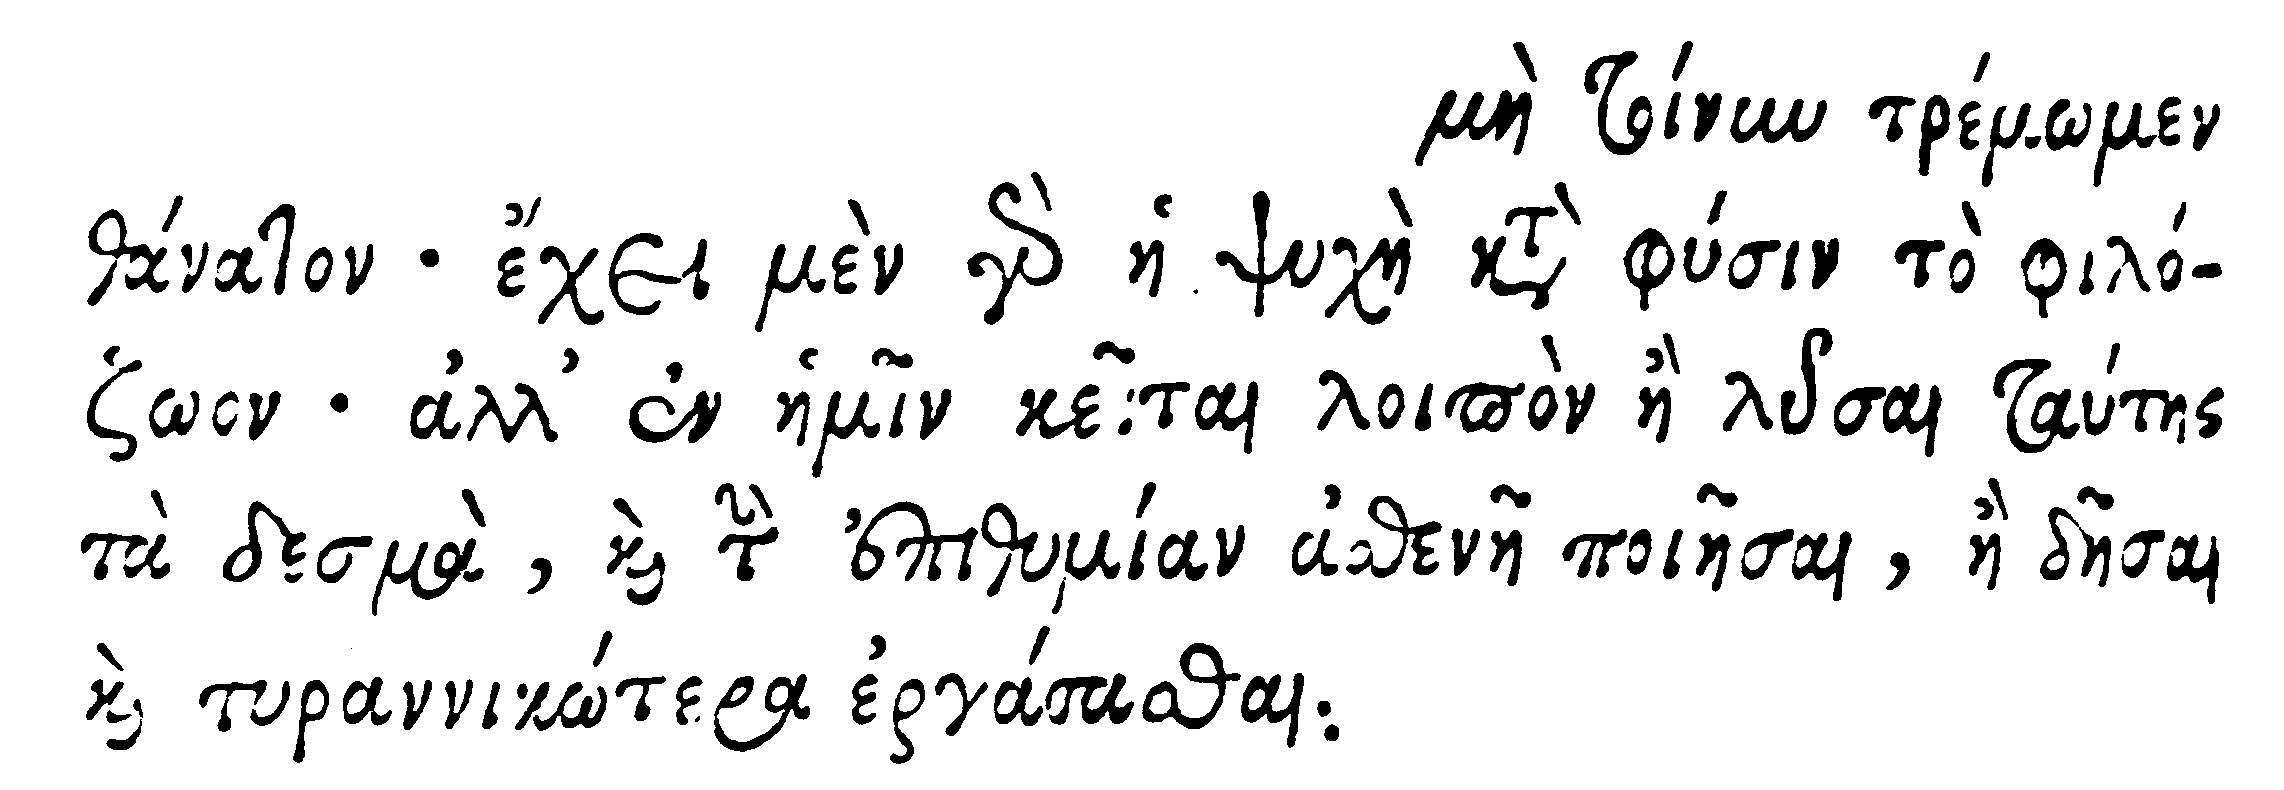 μὴ τοίνυν τρέμωμεν
θάνατον · ἔχει μὲν γὰρ ἡ ψυχὴ κατὰ φύσιν τὸ φιλό-
ζωον · ἀλλ’ ἐν ἡμῖν κεῖται λοιπὸν ἢ λῦσαι ταύτης
τὰ δεσμὰ, καὶ τὴν ἐπιθυμίαν ἀσθενῆ ποιῆσαι, ἢ δῆσαι
καὶ τυραννικώτερα ἐργάσασθαι: